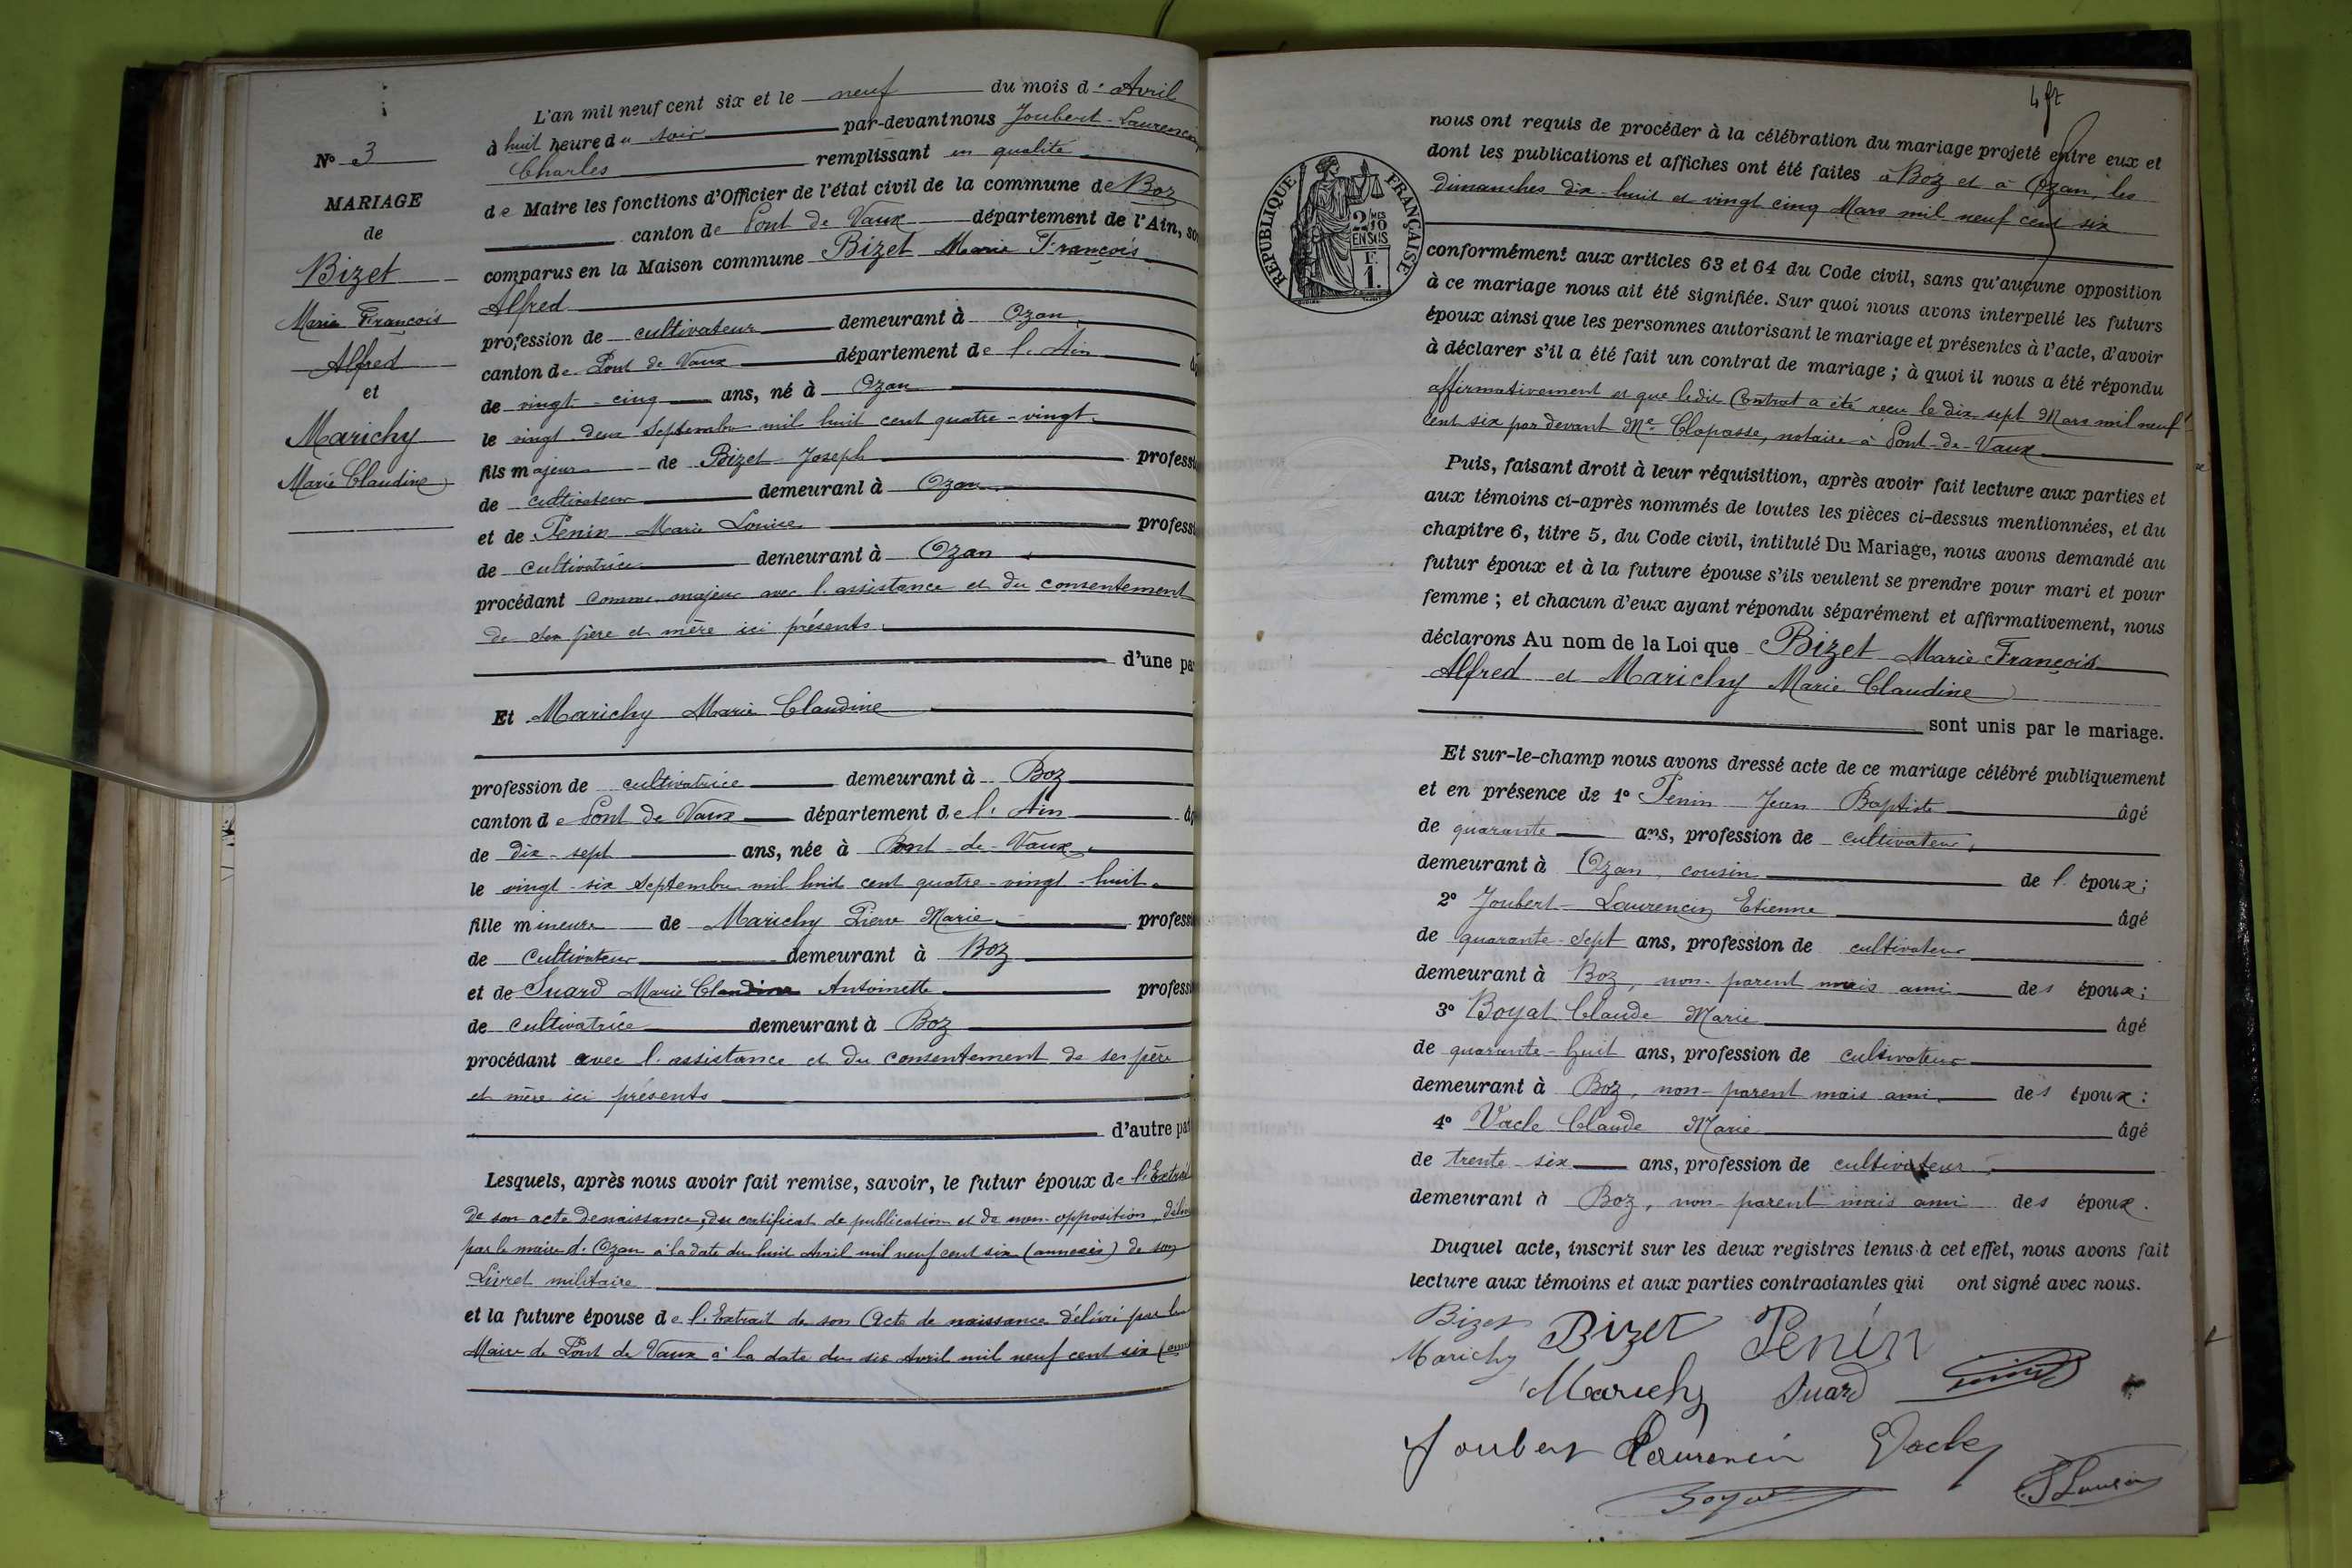 N° 3
MARIAGE
de
Bizet
Marie François
Alfred
et
Marichy
Marie Claudine
L'an mil neuf cent six et le neuf du mois d' Avril
à huit heure du soir par-devant nous Joubert-Laurencin
Charles remplissant en qualité
de Maire les fonctions d'Officier de l'état civil de la commune de Boz
canton de Pont de Vaux département de l'Ain, so
comparus en la Maison commune Bizet Marie François
Alfred
profession de cultivateur demeurant à Ozan,
canton de Pont de Vaux département de l'Ain
de vingt-cinq ans, né à Ozan
le vingt-deux Septembre mil huit cent quatre-vingt
fils majeur de Bizet Joseph profess
de cultivateur demeurant à Ozan
et de Penin Marie Louise profess
de cultivatrice demeurant à Ozan
procédant comme majeur avec l'assistance et du consentement
de son père et mère ici présents
d'une pa
Et Marichy Marie Claudine
profession de cultivatrice demeurant à Boz
canton de Pont de Vaux département de l'Ain
de dix-sept ans, née à Pont-de-Vaux
le vingt-six Septembre mil huit cent quatre-vingt-huit
fille mineure de Marichy Pierre Marie profess
de Cultivateur demeurant à Boz
et de Suard Marie Claudine Antoinette profess
de cultivatrice demeurant à Boz
procédant avec l'assistance et du consentement de ses père
et mère ici présents
d'autre pa
Lesquels, après nous avoir fait remise, savoir, le futur époux de l'Extrait
de son acte de naissance, du certificat de publication et de non-opposition,
par le maire d'Ozan à la date du huit Avril mil neuf cent six (annexés) de son
Livret militaire
et la future épouse de l'Extrait de son Acte de naissance délivré par le
Maire de Pont de Vaux à la date du six Avril mil neuf cent six
RÉPUBLIQUE FRANÇAISE
2/10MES
EN SUS
F.
1.
nous ont requis de procéder à la célébration du mariage projeté entre eux et
dont les publications et affiches ont été faites à Boz et à Ozan, les
dimanches dix-huit et vingt cinq Mars mil neuf cent six
conformément aux articles 63 et 64 du Code civil, sans qu'aucune opposition
à ce mariage nous ait été signifiée. Sur quoi nous avons interpellé les futurs
époux ainsi que les personnes autorisant le mariage et présentes à l'acte, d'avoir
à déclarer s'il a été fait un contrat de mariage ; à quoi il nous a été répondu
affirmativement et que ledit Contrat a été reçu le dix sept Mars mil neuf
Cent six par devant Me Clapasse, notaire à Pont-de-Vaux
Puis, faisant droit à leur réquisition, après avoir fait lecture aux parties et
aux témoins ci-après nommés de toutes les pièces ci-dessus mentionnées, et du
chapitre 6, titre 5, du Code civil, intitulé Du Mariage, nous avons demandé au
futur époux et à la future épouse s'ils veulent se prendre pour mari et pour
femme ; et chacun d'eux ayant répondu séparément et affirmativement, nous
déclarons Au nom de la Loi que Bizet Marie François
Alfred et Marichy Marie Claudine
sont unis par le mariage.
Et sur-le-champ nous avons dressé acte de ce mariage célébré publiquement
et en présence de 1° Penin Jean Baptiste âgé
de quarante ans, profession de cultivateur,
demeurant à Ozan, cousin de l'époux;
2° Joubert-Laurencin Etienne âgé
de quarante-sept ans, profession de cultivateur
demeurant à Boz, non-parent mais ami des époux;
3° Boyat Claude Marie âgé
de quarante-huit ans, profession de cultivateur
demeurant à Boz, non-parent mais ami des époux:
4° Vacle Claude Marie âgé
de trente-six ans, profession de cultivateur,
demeurant à Boz, non-parent mais ami des époux.
Duquel acte, inscrit sur les deux registres tenus à cet effet, nous avons fait
lecture aux témoins et aux parties contractantes qui ont signé avec nous.
Bizet Bizet Penin
Marichy Marichy Suard
Joubert Laurencin Vacle
Boyat